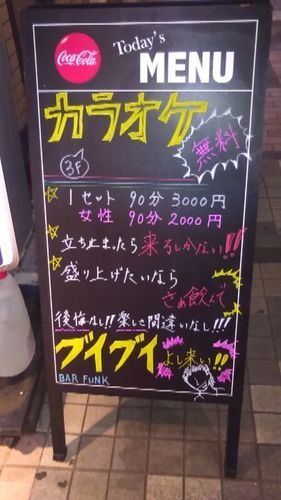 Coca-Cola
Today's
MENU
カラオケ
無料
3F
☆ 1セット 90分 3000円
女性 90分 2000円
☆ 立ち止まったら来るしかない!!
☆ 盛り上げたいなら
さぁ飲んで
後悔なし!! 楽しさ間違いなし!!!
グイグイ
よし来い!!
BAR FUNK